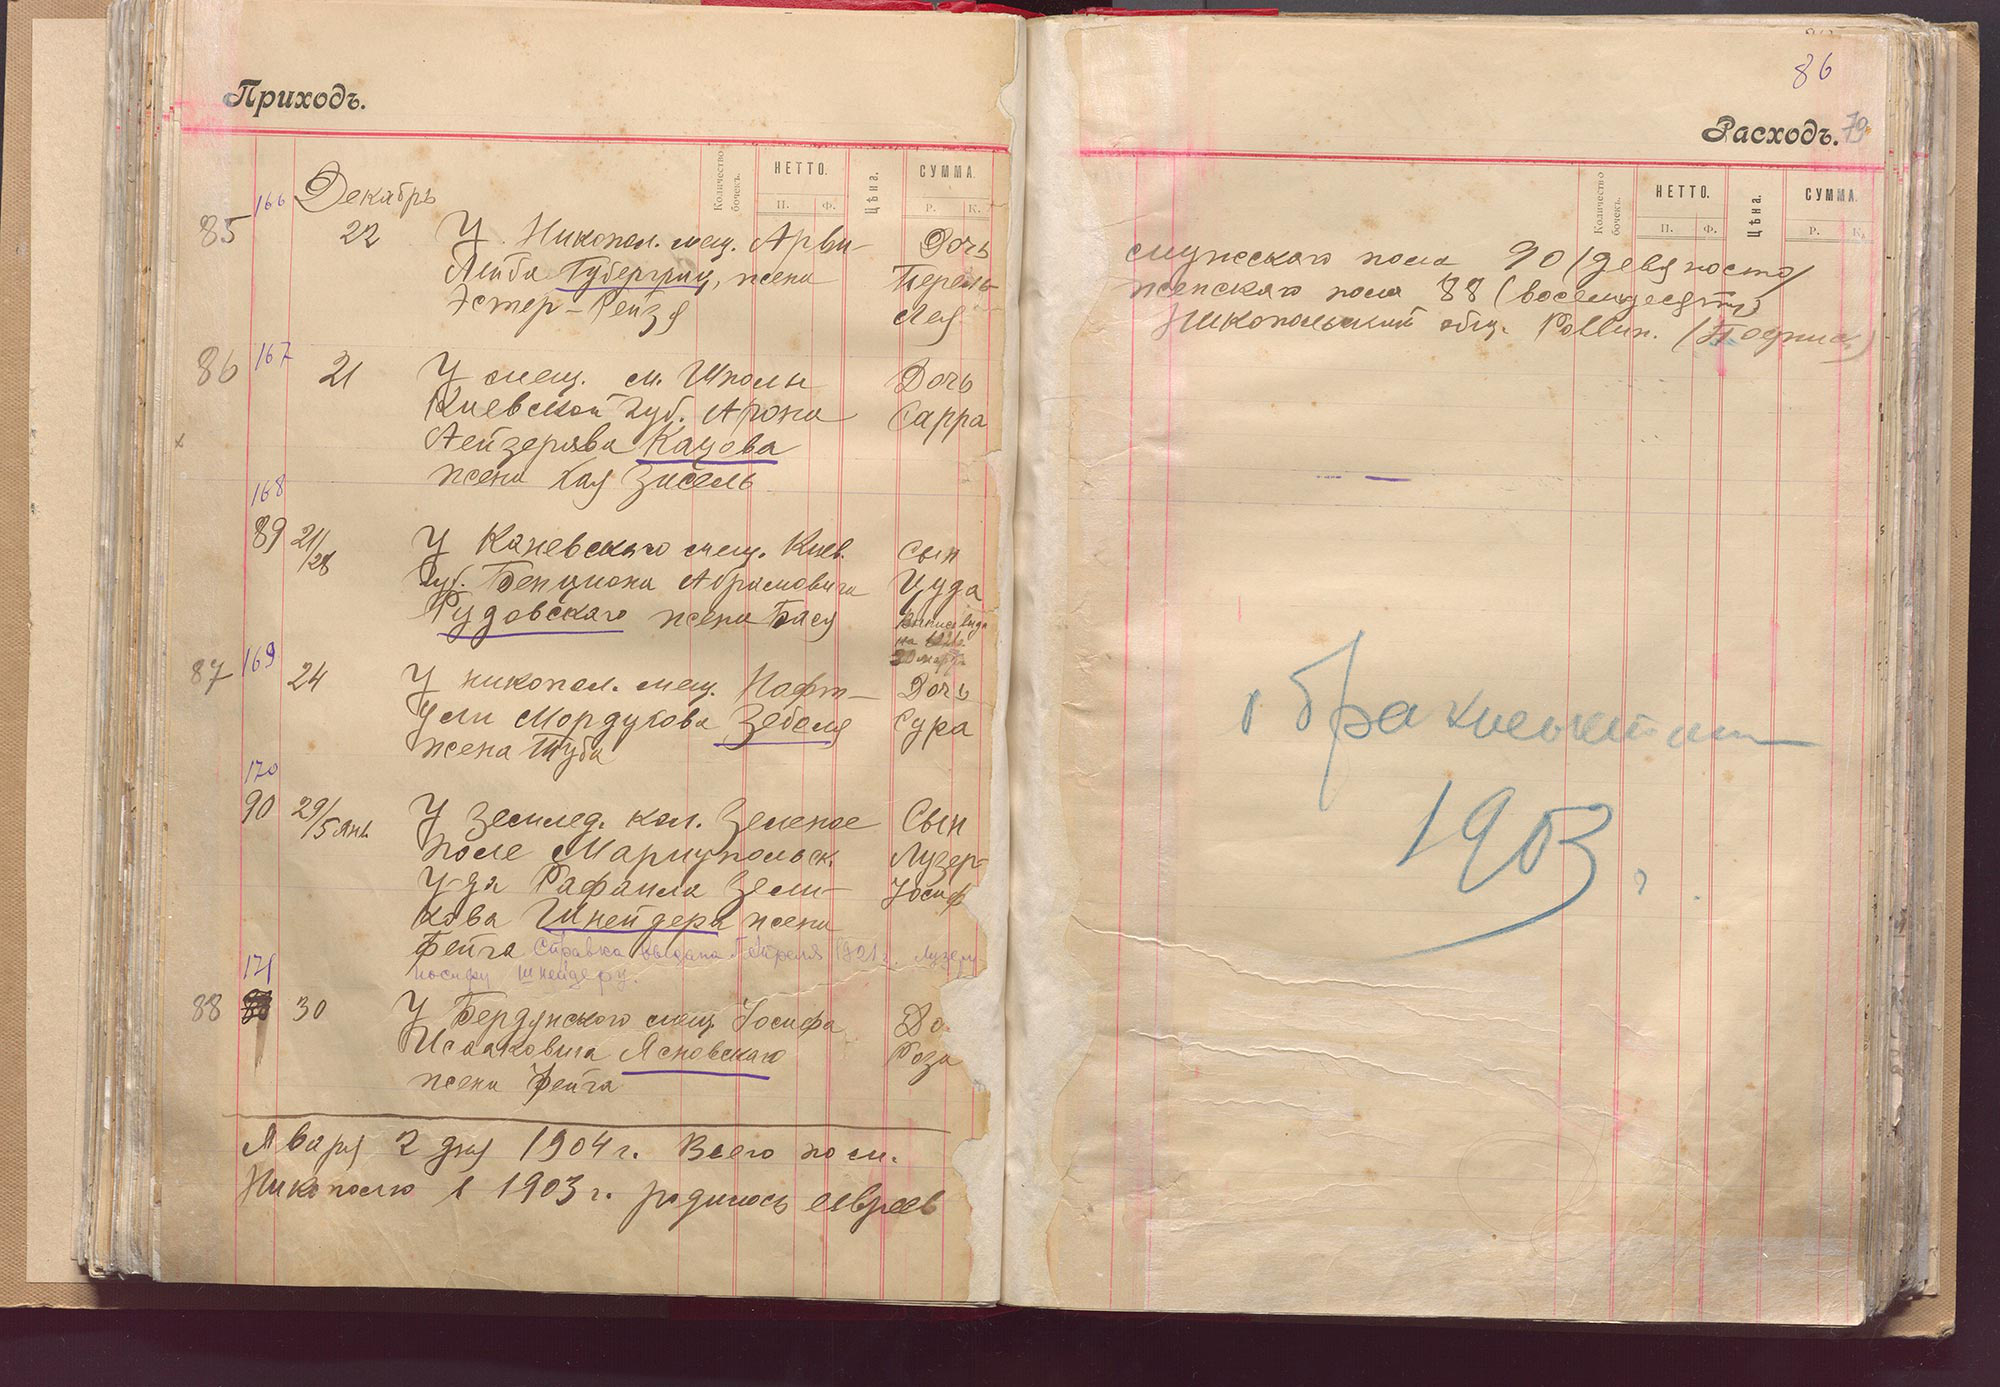 Приходъ.
Количество бочекъ.
НЕТТО.
П. Ф.
Цѣна.
СУММА.
Р. К.
166 Декабрь
85 22 У Никопол. мещ. Арви- Дочь
Лейба Губергриц, жена Перель-
Эстер-Рейзя Лея
86 167 21 У мещ. м. Шполы Дочь
Киевской губ. Арона Сарра
Лейзерява Кацова
жена Хая Зисель
168
89 21/28 У Каневскаго мещ. Киев. Сын
губ. Бенциона Абрамовича Иуда
Рудовскаго жена Бася
на
87 169 24 У никопол. мещ. Нафт- Дочь
ули Мордухова Зебеля Сура
жена Туба
170
90 29/5 янв. У Землед. кол. Зеленое Сын
поле Мариупольск. Лузер-
у-да Рафаила Зели- Иосиф
кова Шнейдера жена
Фейга Справка выдана Апреля 1921 г. Лузер-
Иосифу Шнейдеру.
171
88 30 У Бердянского мещ. Иосифа До
Исааковича Ясновскаго Роза
жена Фейга
Января 2 дня 1904 г. Всего по м.
Никополю в 1903 г. родилось евреев
86
Расходъ. 79
Количество бочекъ.
НЕТТО.
П. Ф.
Цѣна.
СУММА.
Р. К.
мужескаго пола 90 (девяносто)
женскаго пола 88 (восемьдесят)
Никопольский общ. Раввин. (Подпись)
1903